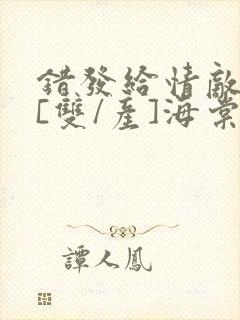 錯發給情敵
[雙/產]海棠
譚人鳳